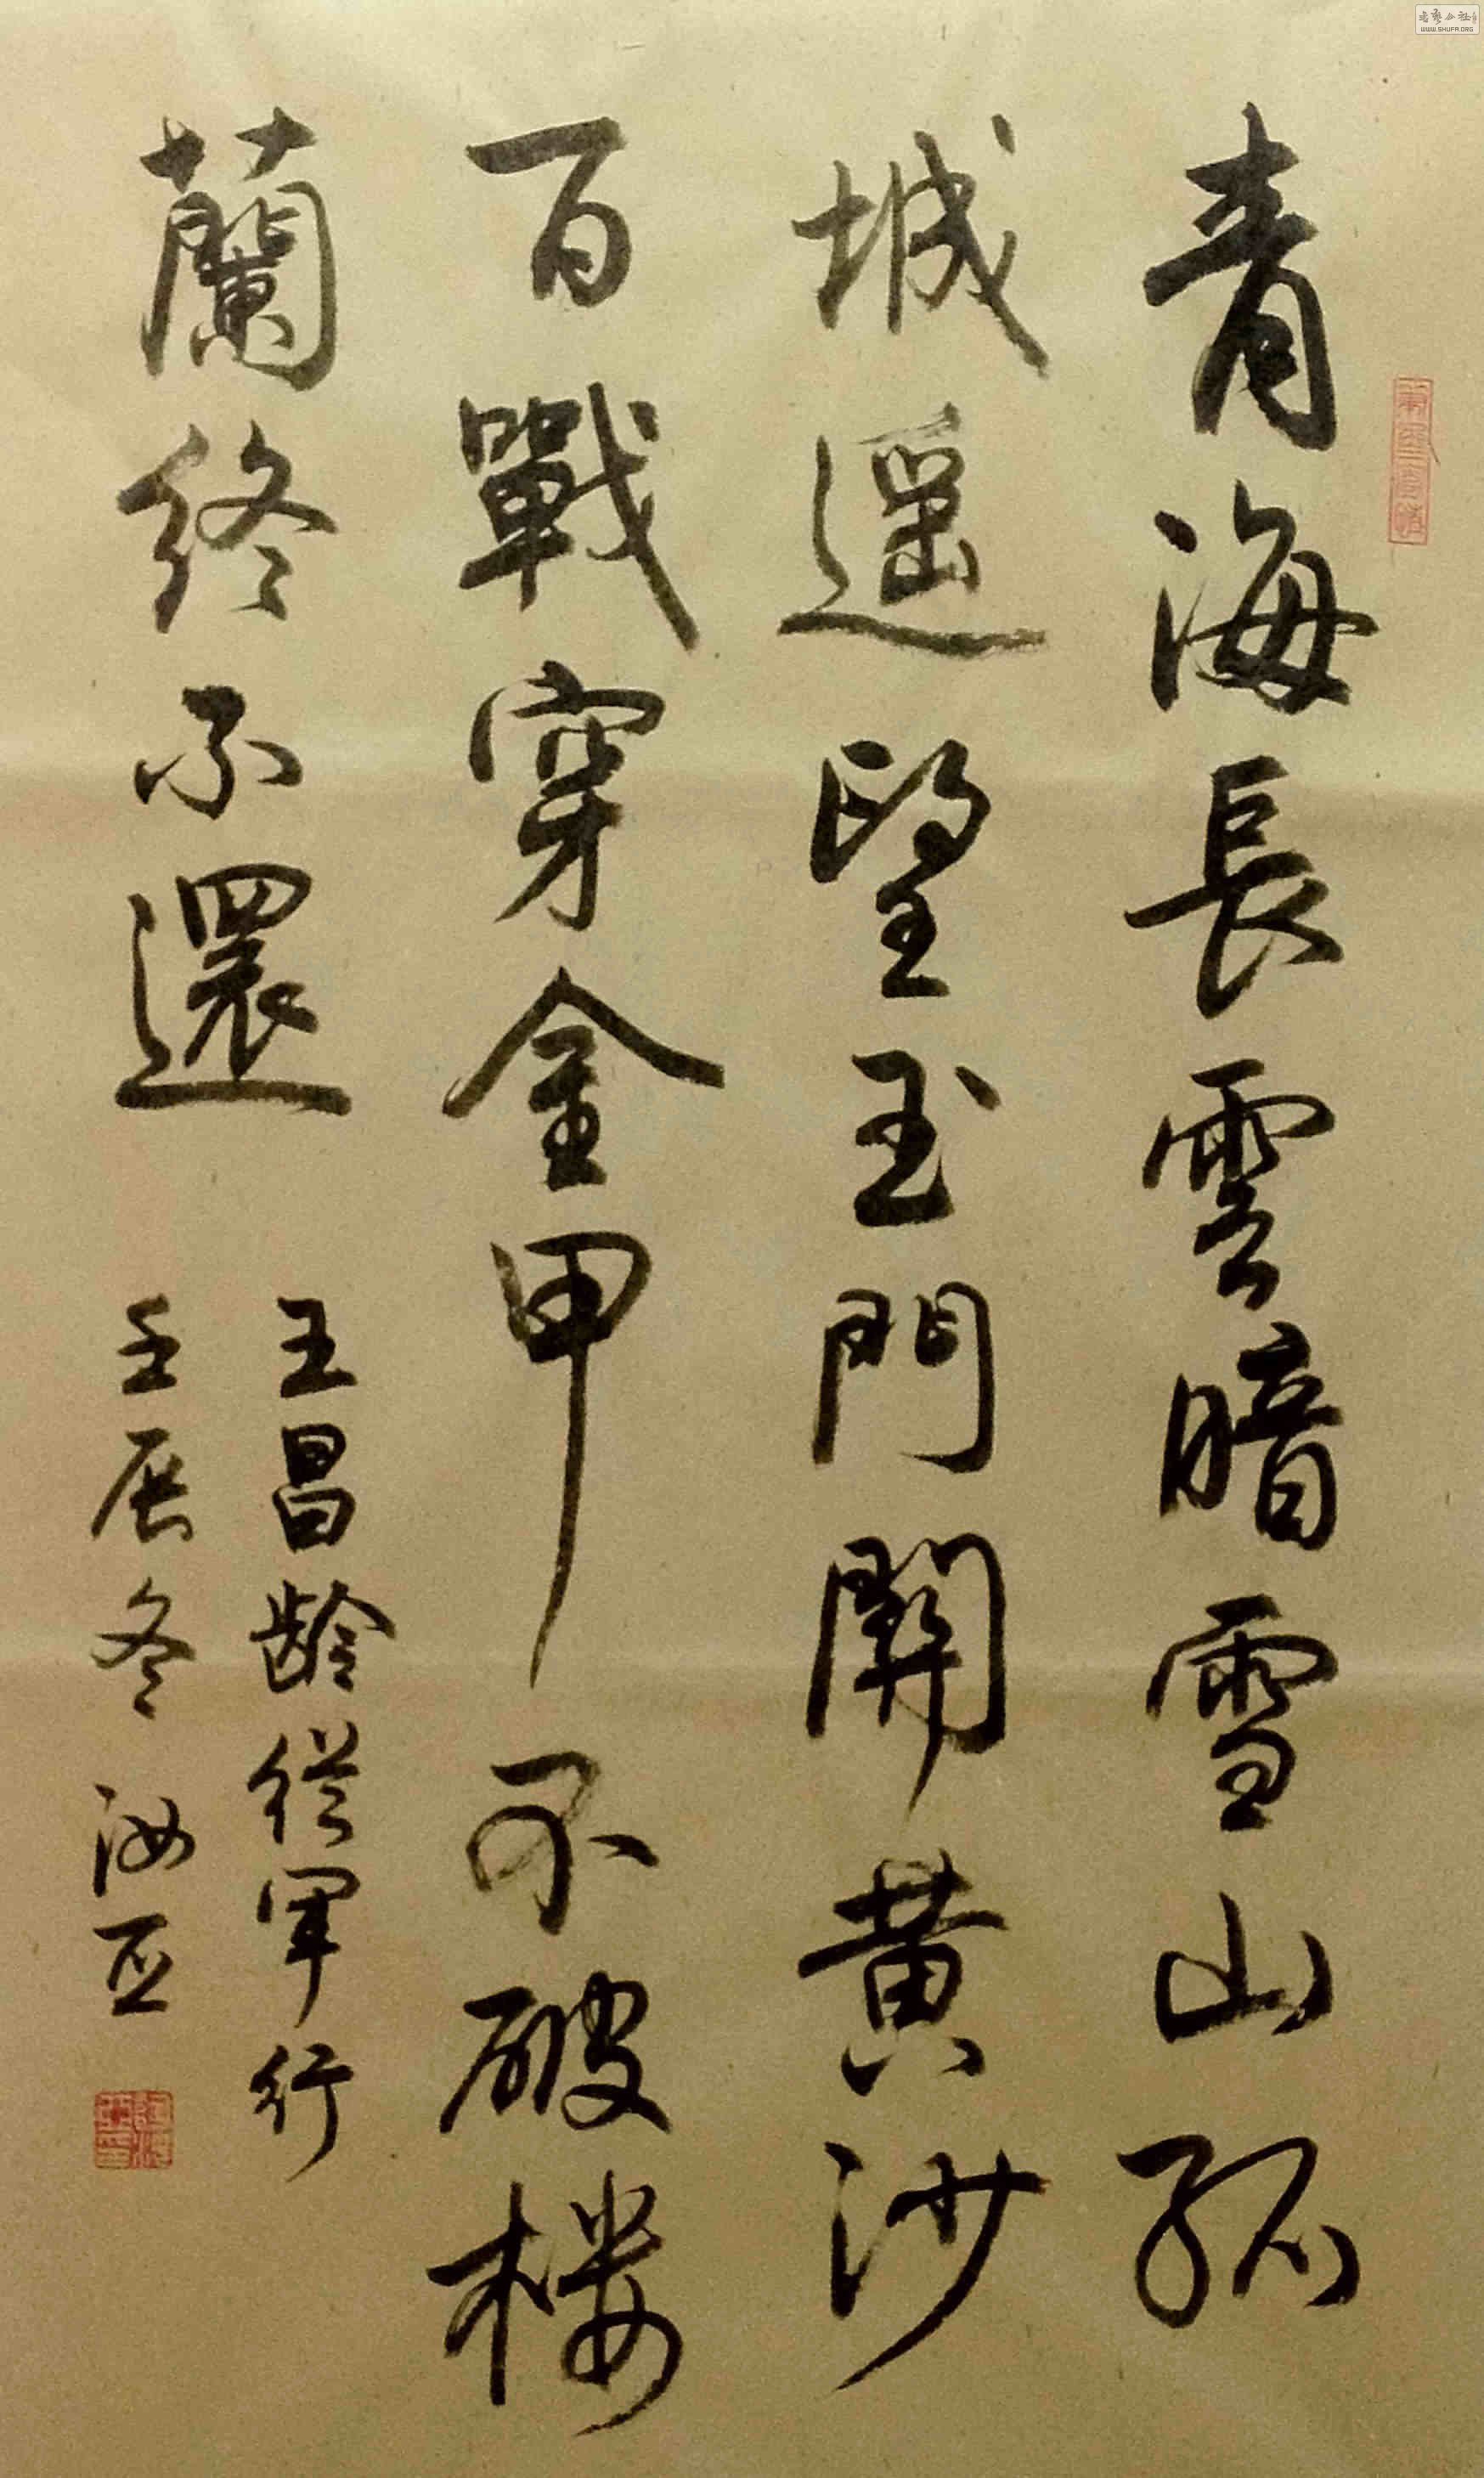 青海長雲暗雪山孤
城遥望玉門關黄沙
百戰穿金甲不破楼
蘭終不還
王昌龄從军行
壬辰冬 汝亞
WWW.SHUFA.ORG